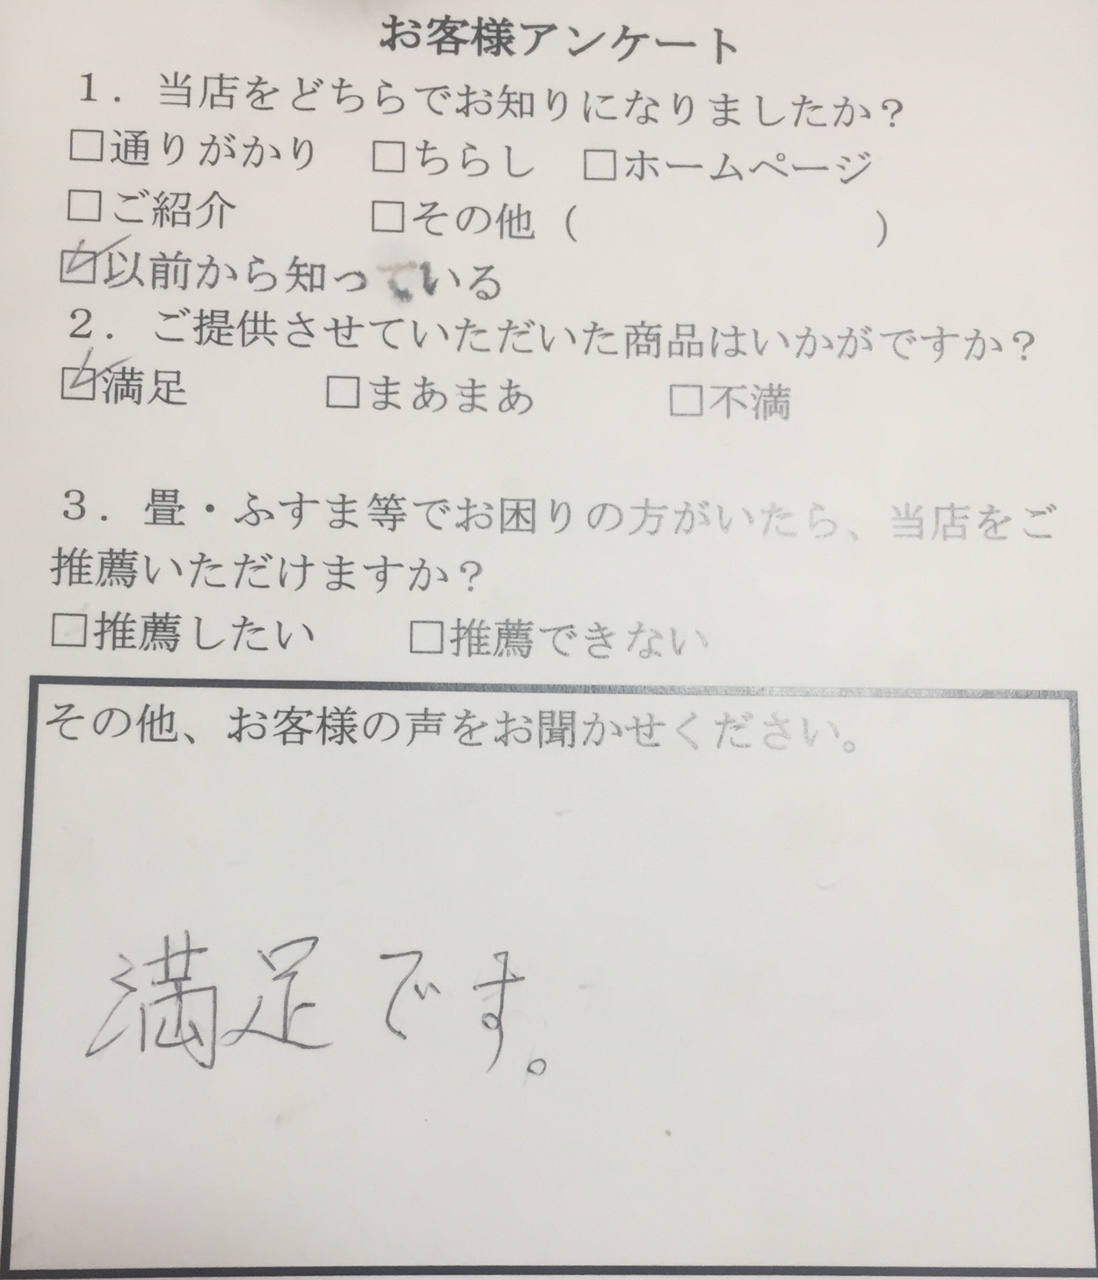 お客様アンケート
1．当店をどちらでお知りになりましたか？
□通りがかり　□ちらし　□ホームページ
□ご紹介　　　□その他（　　　　　　　）
☑以前から知っている
2．ご提供させていただいた商品はいかがですか？
☑満足　　　□まあまあ　　　□不満
3．畳・ふすま等でお困りの方がいたら、当店をご
推薦いただけますか？
□推薦したい　　□推薦できない
その他、お客様の声をお聞かせください。
満足です。